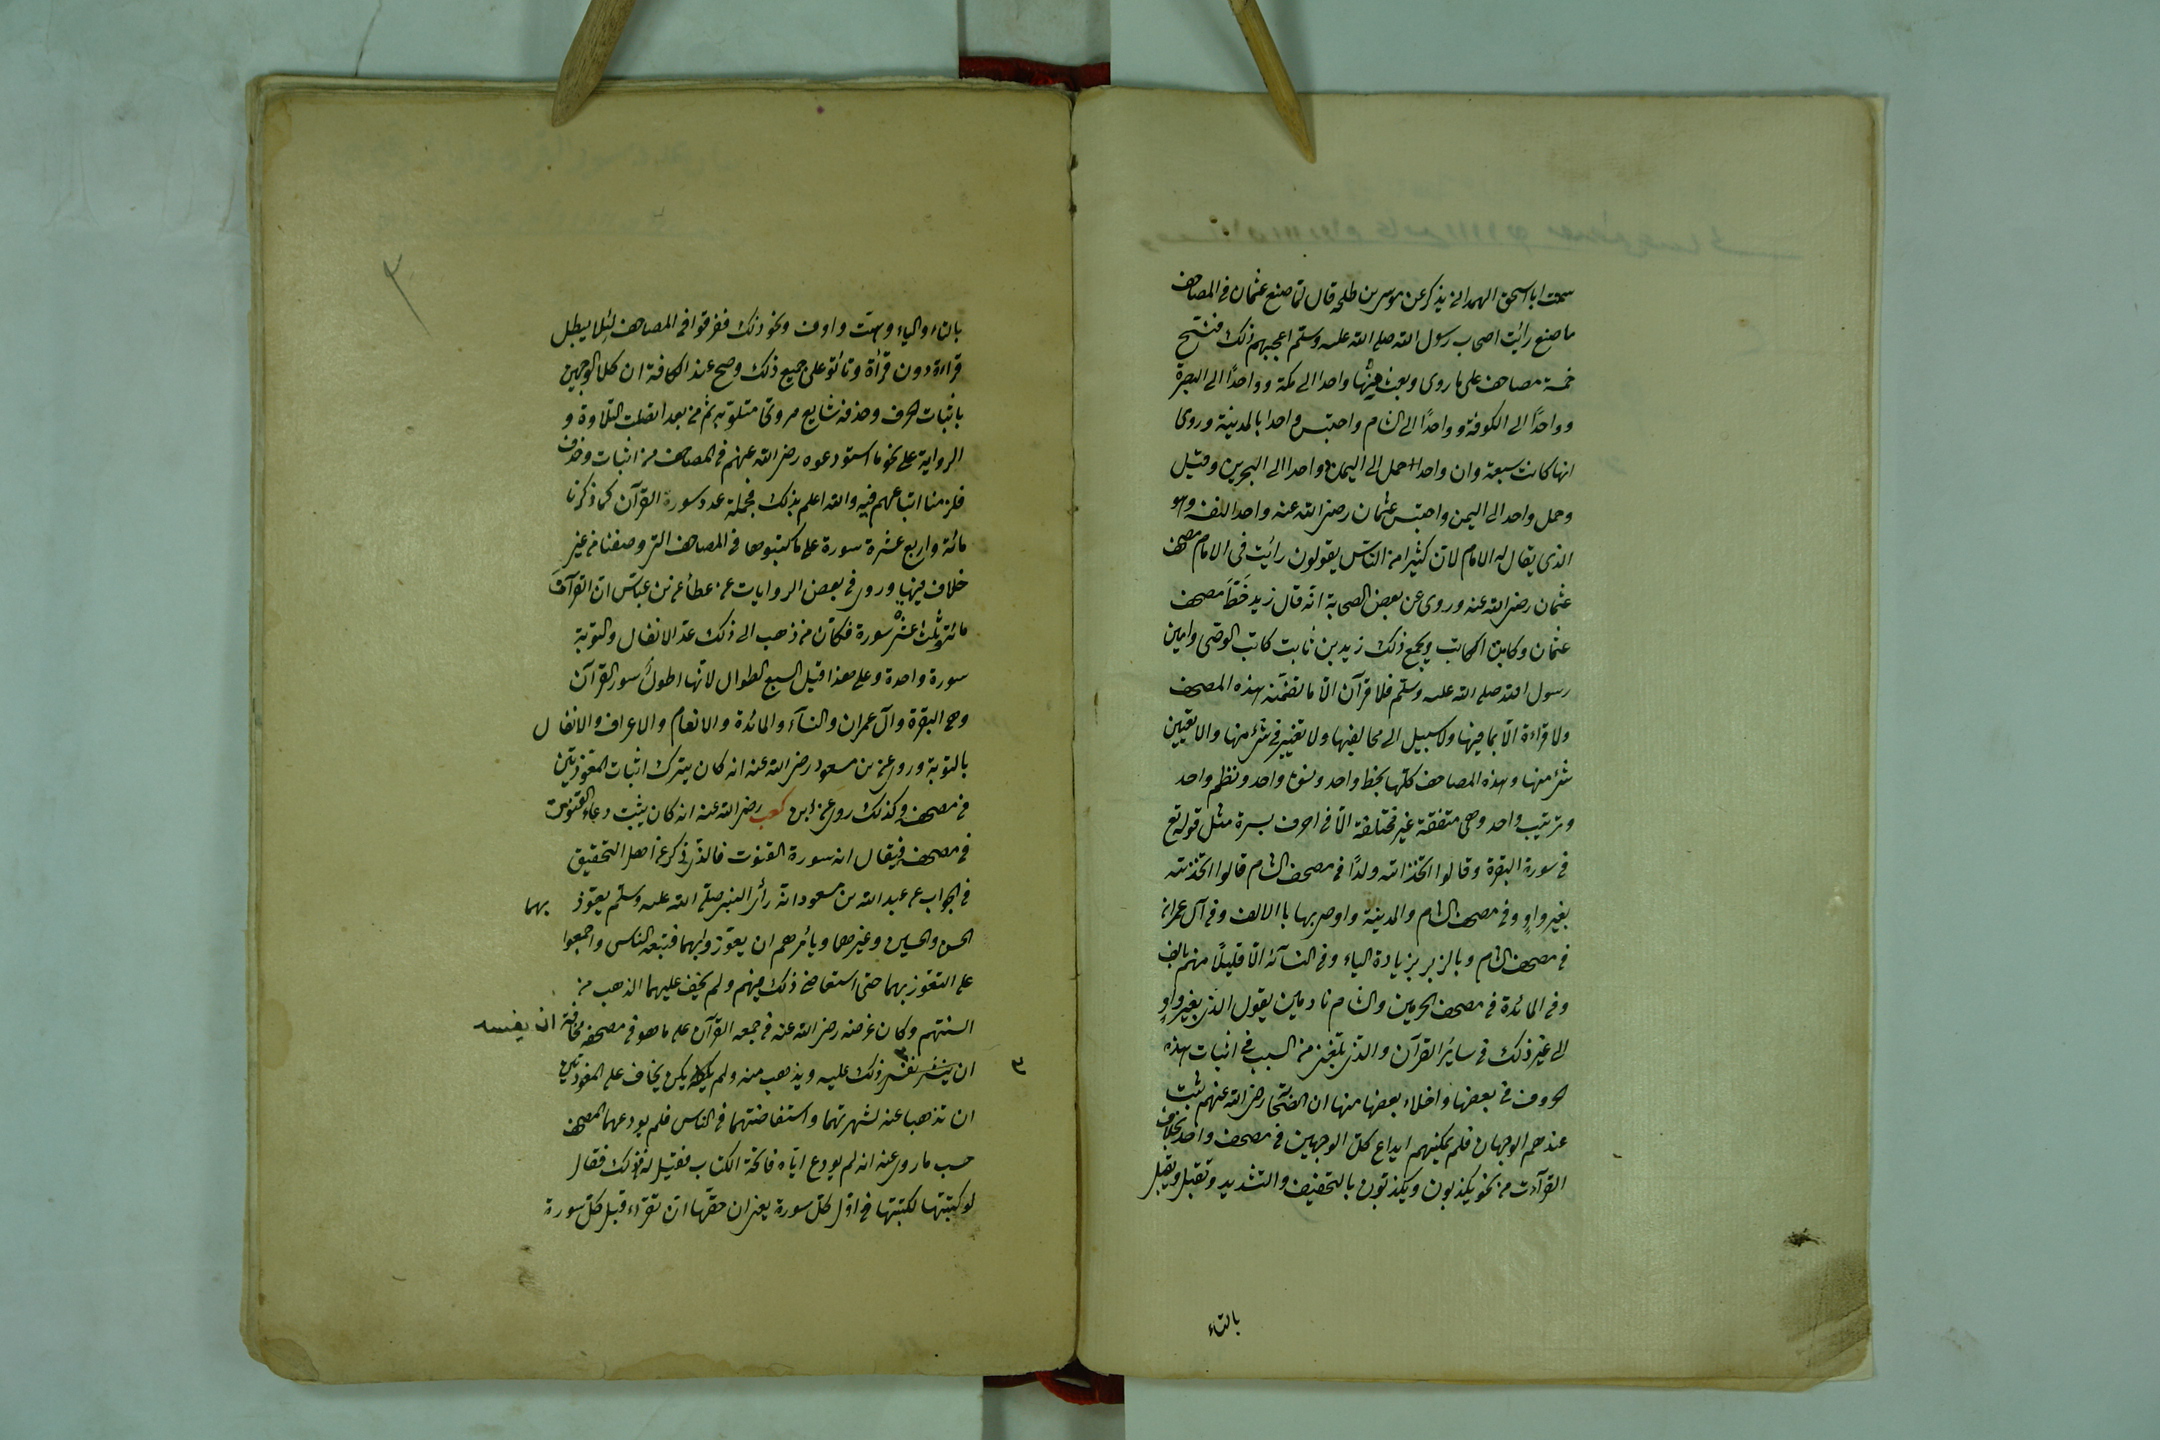 سمعت ابا اسحق الهمدانى يذكر عن موسى بن طلحة قال لما صنع عثمان فى المصاحف
ما صنع رأيت اصحاب رسول الله صلى الله عليه وسلم اعجبهم ذلك فنسخ
خمسة مصاحف على ما روى وبعث منها واحدا الى مكة وواحدًا الى البصرة
وواحدًا الى الكوفة وواحدًا الى الشام واحتبس واحدا بالمدينة وروى
انها كانت سبعة وان واحدا حمل الى اليمن وواحدا الى البحرين وقيل
وحمل واحد الى اليمن واحتبس عثمان رضى الله عنه واحدا لنفسه وهو
الذى يقال له الامام لان كثيرا من الناس يقولون رأيت فى الامام مصحف
عثمان رضى الله عنه وروى عن بعض الصحابة انه قال زيد خَطَّ مصحف
عثمان وكان الكاتب بجمع ذلك زيد بن ثابت كاتب الوحى وامين
رسول الله صلى الله عليه وسلم فلا قرآن الّا ما تضمّنه هذه المصحف
ولا قراءة الّا بما فيها ولا سبيل الى مخالفتها ولا تغيير فى شئ منها والا تعيين
شئ منها وهذه المصاحف كلها بخط واحد ونسق واحد ونظم واحد
وترتيب واحد وهى متفقة غير مختلفة الّا فى احرف يسيرة مثل قوله تع
فى سورة البقرة وقالوا اتخذ الله ولدًا فى مصحف الشام قالوا اتخذ الله
بغير واوٍ وفى مصحف الشام والمدينة واوصى بها با الالف وفى آل عمران
فى مصحف الشام وبالزبر بزيادة الياء وفى النسآء الّا قليلًا منهم بالف
وفى المائدة فى مصحف الحرمين والشام نادمين يقول الذين بغير واوٍ
الى غير ذلك فى سائر القرآن والذى بلغنى من السبب فى اثبات هذه
الحروف فى بعضها واخلاء بعضها منها ان الصحابة رضى الله عنهم ثبت
عندهم الوجهان فلم يمكنهم ايداع كلّ الوجهين فى مصحف واحد بخلاف
القرآءت من نحو يكذبون ويكذّبون بالتخفيف والتشديد وتقبل ويقبل
بالتاء
بالتاء والياء وهيت واوف ونحو ذلك ففرقوا فى المصاحف لئلا يبطل
قراءة دون قرأة وتأتوا على جميع ذلك وصح عند الكافة ان كلا الوجهين
باثبات الحرف وحذفه شايع مروىّ متلوّ به ثم من بعد اتصلت التلاوة و
الرواية على نحو ما استودعوه رضى الله عنهم فى المصاحف من اثبات وحذف
فلزمنا اتباعهم فيه والله اعلم بذلك فجملة عدد سورة القرآن كما ذكرنا
مائة واربع عشرة سورة على ما كتبوها فى المصاحف التى وصفنا من غير
خلاف فيها وروى فى بعض الروايات عن عطأ عن بن عباس ان القرآن
مائة وثلث عشر سورة فكان من ذهب الى ذلك عدّ الانفال والتوبة
سورة واحدة وعلى هذا قيل السبع الطوال لانها اطول سور القرآن
وهى البقرة وآل عمران والنسآء والمائدة والانعام والاعراف والانفال
بالتوبة وروى عن بن مسعود رضى الله عنه انه كان يترك اثبات المعوّذتين
فى مصحف وكذلك روى عن ابى كعب رضى الله عنه انه كان يثبت دعاء القنوت
فى مصحف فيقال انه سورة القنوت فالذى ذكر عن اهل التحقيق
فى الجواب عن عبد الله بن مسعود انه رأى النبى صلّى الله عليه وسلم يعوّذ بهما
الحسن والحسين وغيرهما ويأمرهم ان يعوّذوا بهما فتبعه الناس واجمعوا
على التعوّذ بهما حتى استفاض ذلك فيهم ولم يخف عليهما الذهب من
السنتهم وكان غرضه رضى الله عنه فى جمعه القرآن على ما هو فى مصحفه مخافة ان ينسه
ان ذلك عليه ويذهب منه ولم يكن يخاف على المعوذتين
٣
ان تذهبا عنه لشهرتهما واستفاضتهما فى الناس فلم يودعهما المصحف
حسب ما روى عنه انه لم يودع ايّاه فاتحة الكتاب فقيل له فى ذلك فقال
لو كتبتها لكتبتها فى اوّل كلّ سورة يعنى ان حقّها ان تقرّاء قبل كلّ سورة